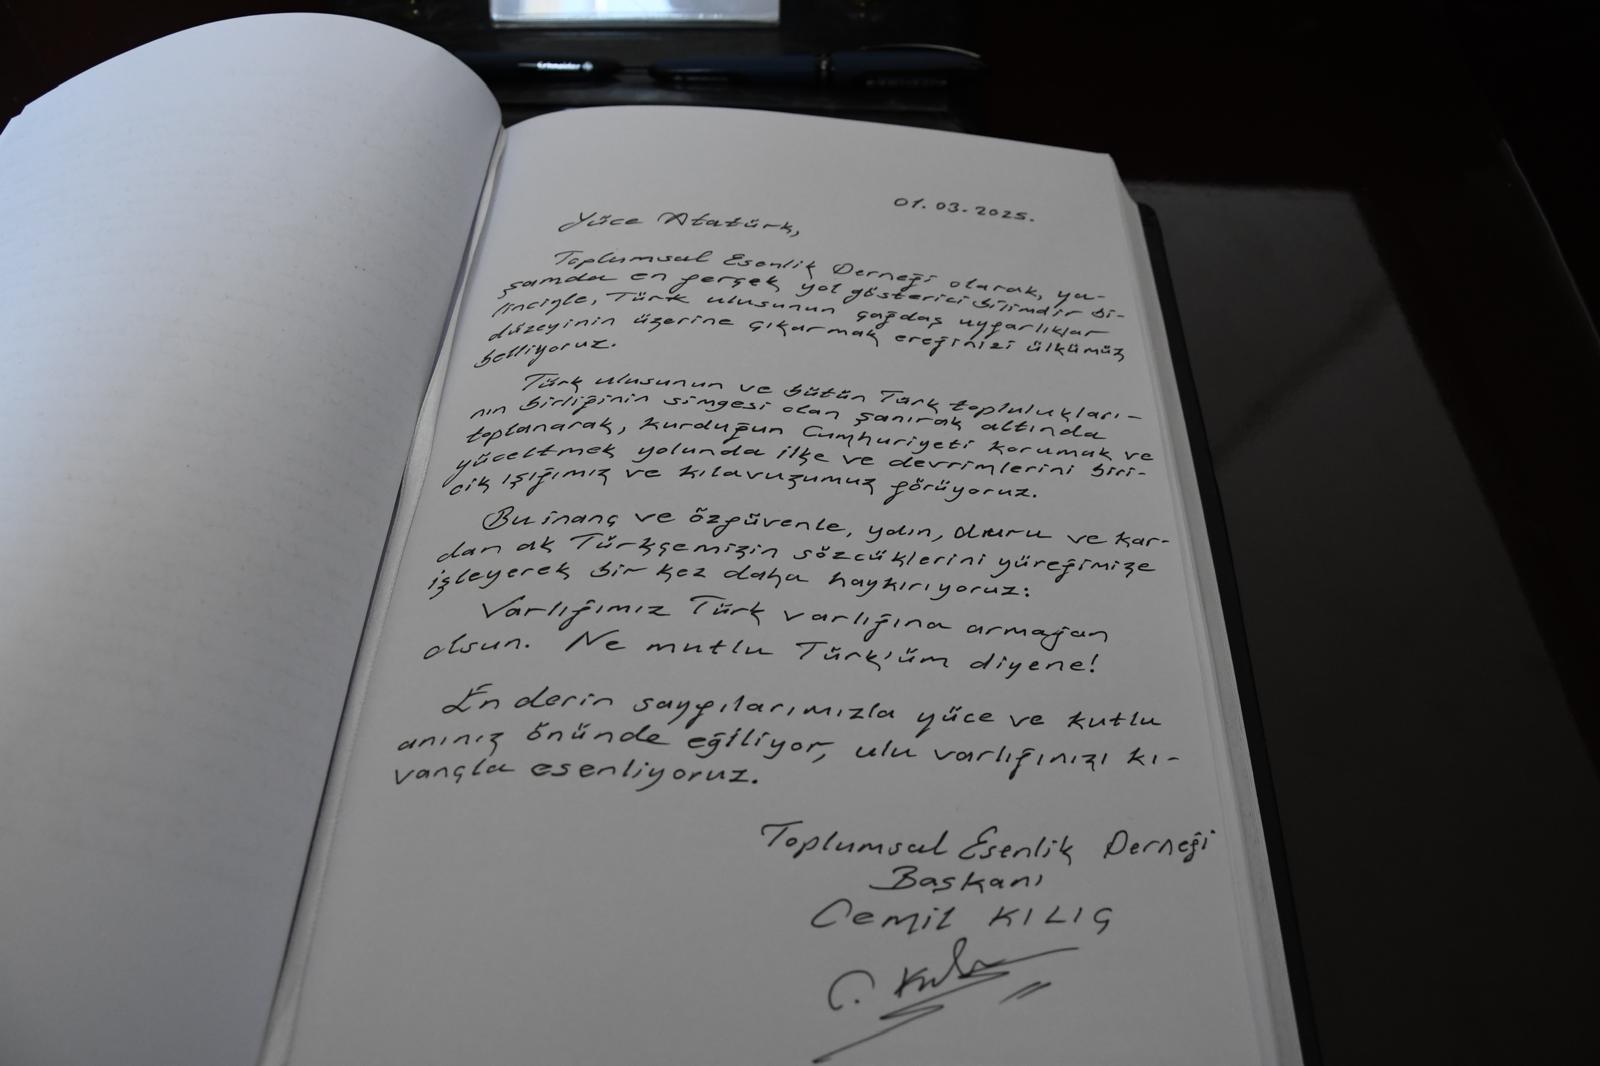 Schneider
01.03.2025.
Yüce Atatürk,
Toplumsal Esenlik Derneği olarak, ya-
şamda en gerçek yol gösterici bilimdir bi-
linciyle, Türk ulusunun çağdaş uygarlıklar
düzeyinin üzerine çıkarmak ereğinizi ülkümüz
belliyoruz.
Türk ulusunun ve bütün Türk toplulukları-
nın birliğinin simgesi olan şanırak altında
toplanarak, kurduğun Cumhuriyeti korumak ve
yüceltmek yolunda ilke ve devrimlerini biri-
cik ışığımız ve kılavuzumuz görüyoruz.
Bu inanç ve özgüvenle, yalın, duru ve kar-
dan ak Türkçemizin sözcüklerini yüreğimize
işleyerek bir kez daha haykırıyoruz:
Varlığımız Türk varlığına armağan
olsun. Ne mutlu Türk'üm diyene!
En derin saygılarımızla yüce ve kutlu
anınız önünde eğiliyor, ulu varlığınızı kı-
vançla esenliyoruz.
Toplumsal Esenlik Derneği
Başkanı
Cemil KILIÇ